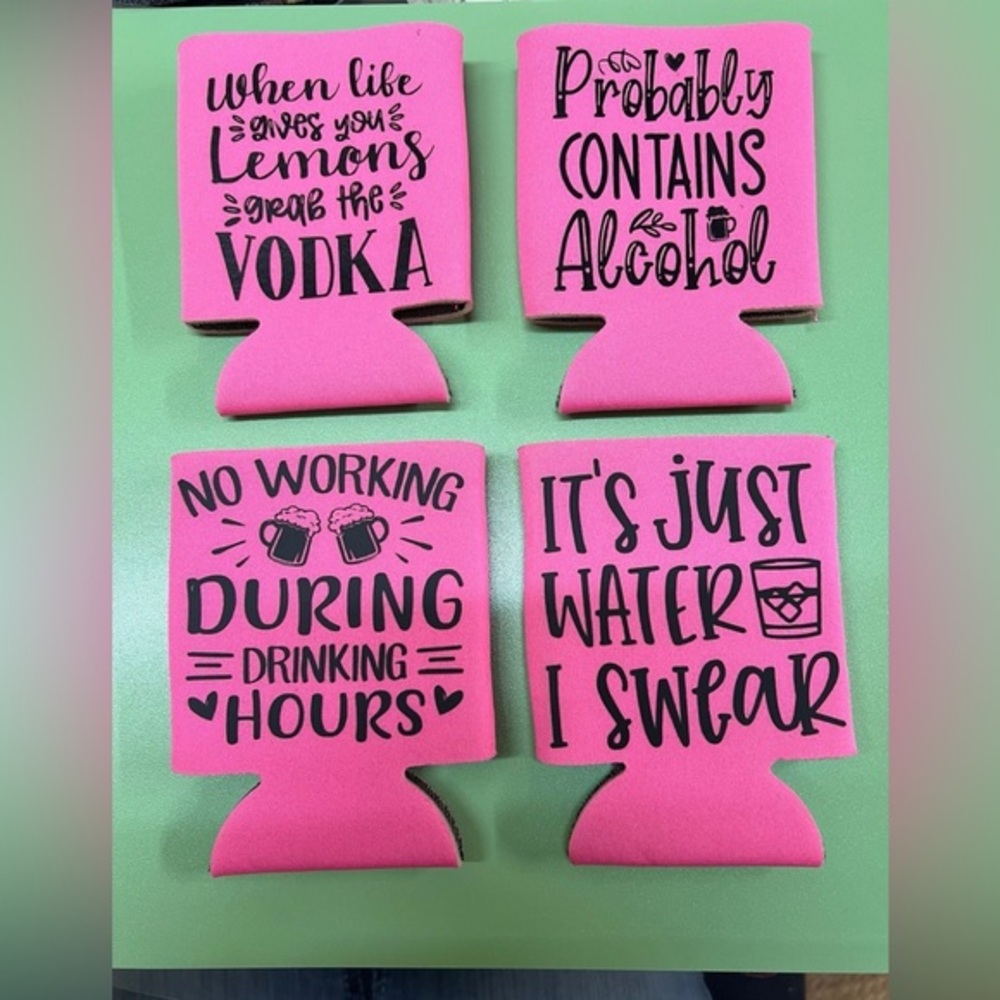 When life
gives you
Lemons
grab the
VODKA
Probably
CONTAINS
Alcohol
NO WORKING
DURING
DRINKING
HOURS
IT'S JUST
WATER
I SWEAR